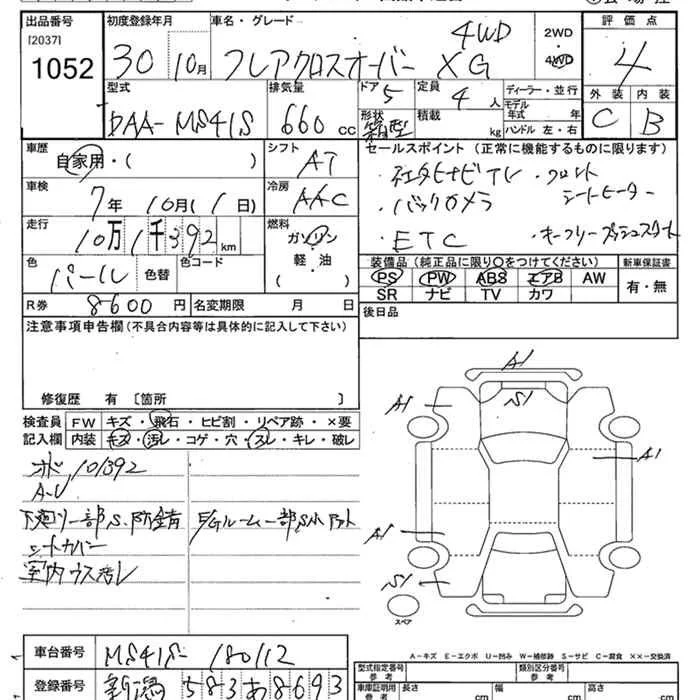 出品番号 初度登録年月 車名・グレード 評価点
[2037]
1052 30 10月 フレアクロスオーバー 4WD XG 2WD 4WD 4
型式 排気量 ドア 5 定員 4人 ディーラー・並行 外装 内装
DAA-MS41S 660cc 形状 箱型 積載 kg モデル年式 年 ハンドル 左・右 C B
車歴 シフト セールスポイント(正常に機能するものに限ります)
自家用・( ) AT
・社外ナビTV ・フロントシートヒーター
車検 冷房
7年10月(1日) AAC ・バックカメラ
走行 燃料
10万1千392km ガソリン 軽・油 ( ) ・ETC ・キーフリープッシュスタート
色 パール 色替 色コード
装備品(純正品に限り○をつけてください) 新車保証書
PS PW ABS エアB AW 有・無
SR ナビ TV カワ
R券 8600円 名変期限 月 日
後日品
注意事項申告欄(不具合内容等は具体的に記入して下さい)
修復歴 有 [箇所 ]
検査員記入欄 FW キズ・飛石・ヒビ割・リペア跡・×要
内装 キズ・汚レ・コゲ・穴・スレ・キレ・破レ
101392
A-U
下廻り一部S、防錆
シートカバー
室内ウス汚レ
A1
S1
A1
A1
A1
S1
スペア
A-キズ E-エクボ U-凹み W-補修跡 S-サビ C-腐食 XX-交換済
車台番号 MS41S-180112
登録番号 新潟583あ8693
型式指定番号 参考 類別区分番号 参考
車庫証明用 参考 長さ cm 幅 cm 高さ cm